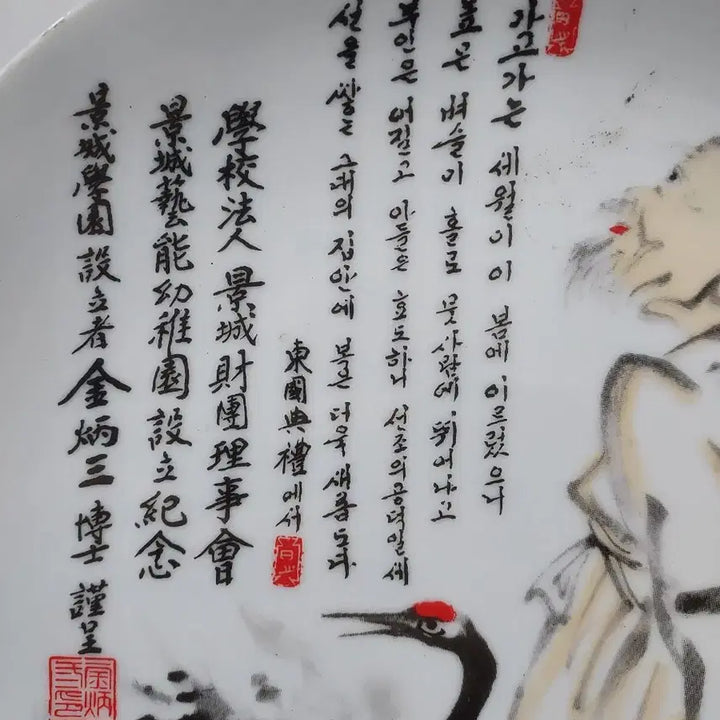 가고가는 세월이 이 봄에 이르렀으니
높은 벼슬이 홀로 뭇사람에 뛰어나고
부인은 어질고 아들은 효도하니 선조의 공덕일세
선을 쌓는 그대의 집안에 복은 더욱 새롭도다
東國典禮에서
學校法人 景城財團理事會
景城藝能幼稚園設立紀念
景城學園設立者 金炳三 博士 謹呈